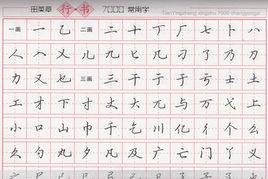 田英章 行书 7000 常用字
一画 一 乙 二画 二 十 丁 厂 七 卜 八
人 入 儿 九 几 刁 了 乃 刀
力 又 三画 三 干 于 亏 士 土
工 才 下 寸 丈 大 与 万 上
小 口 山 巾 千 川 亿 个 么
久 勺 丸 夕 凡 及 广 亡 门 丫 义